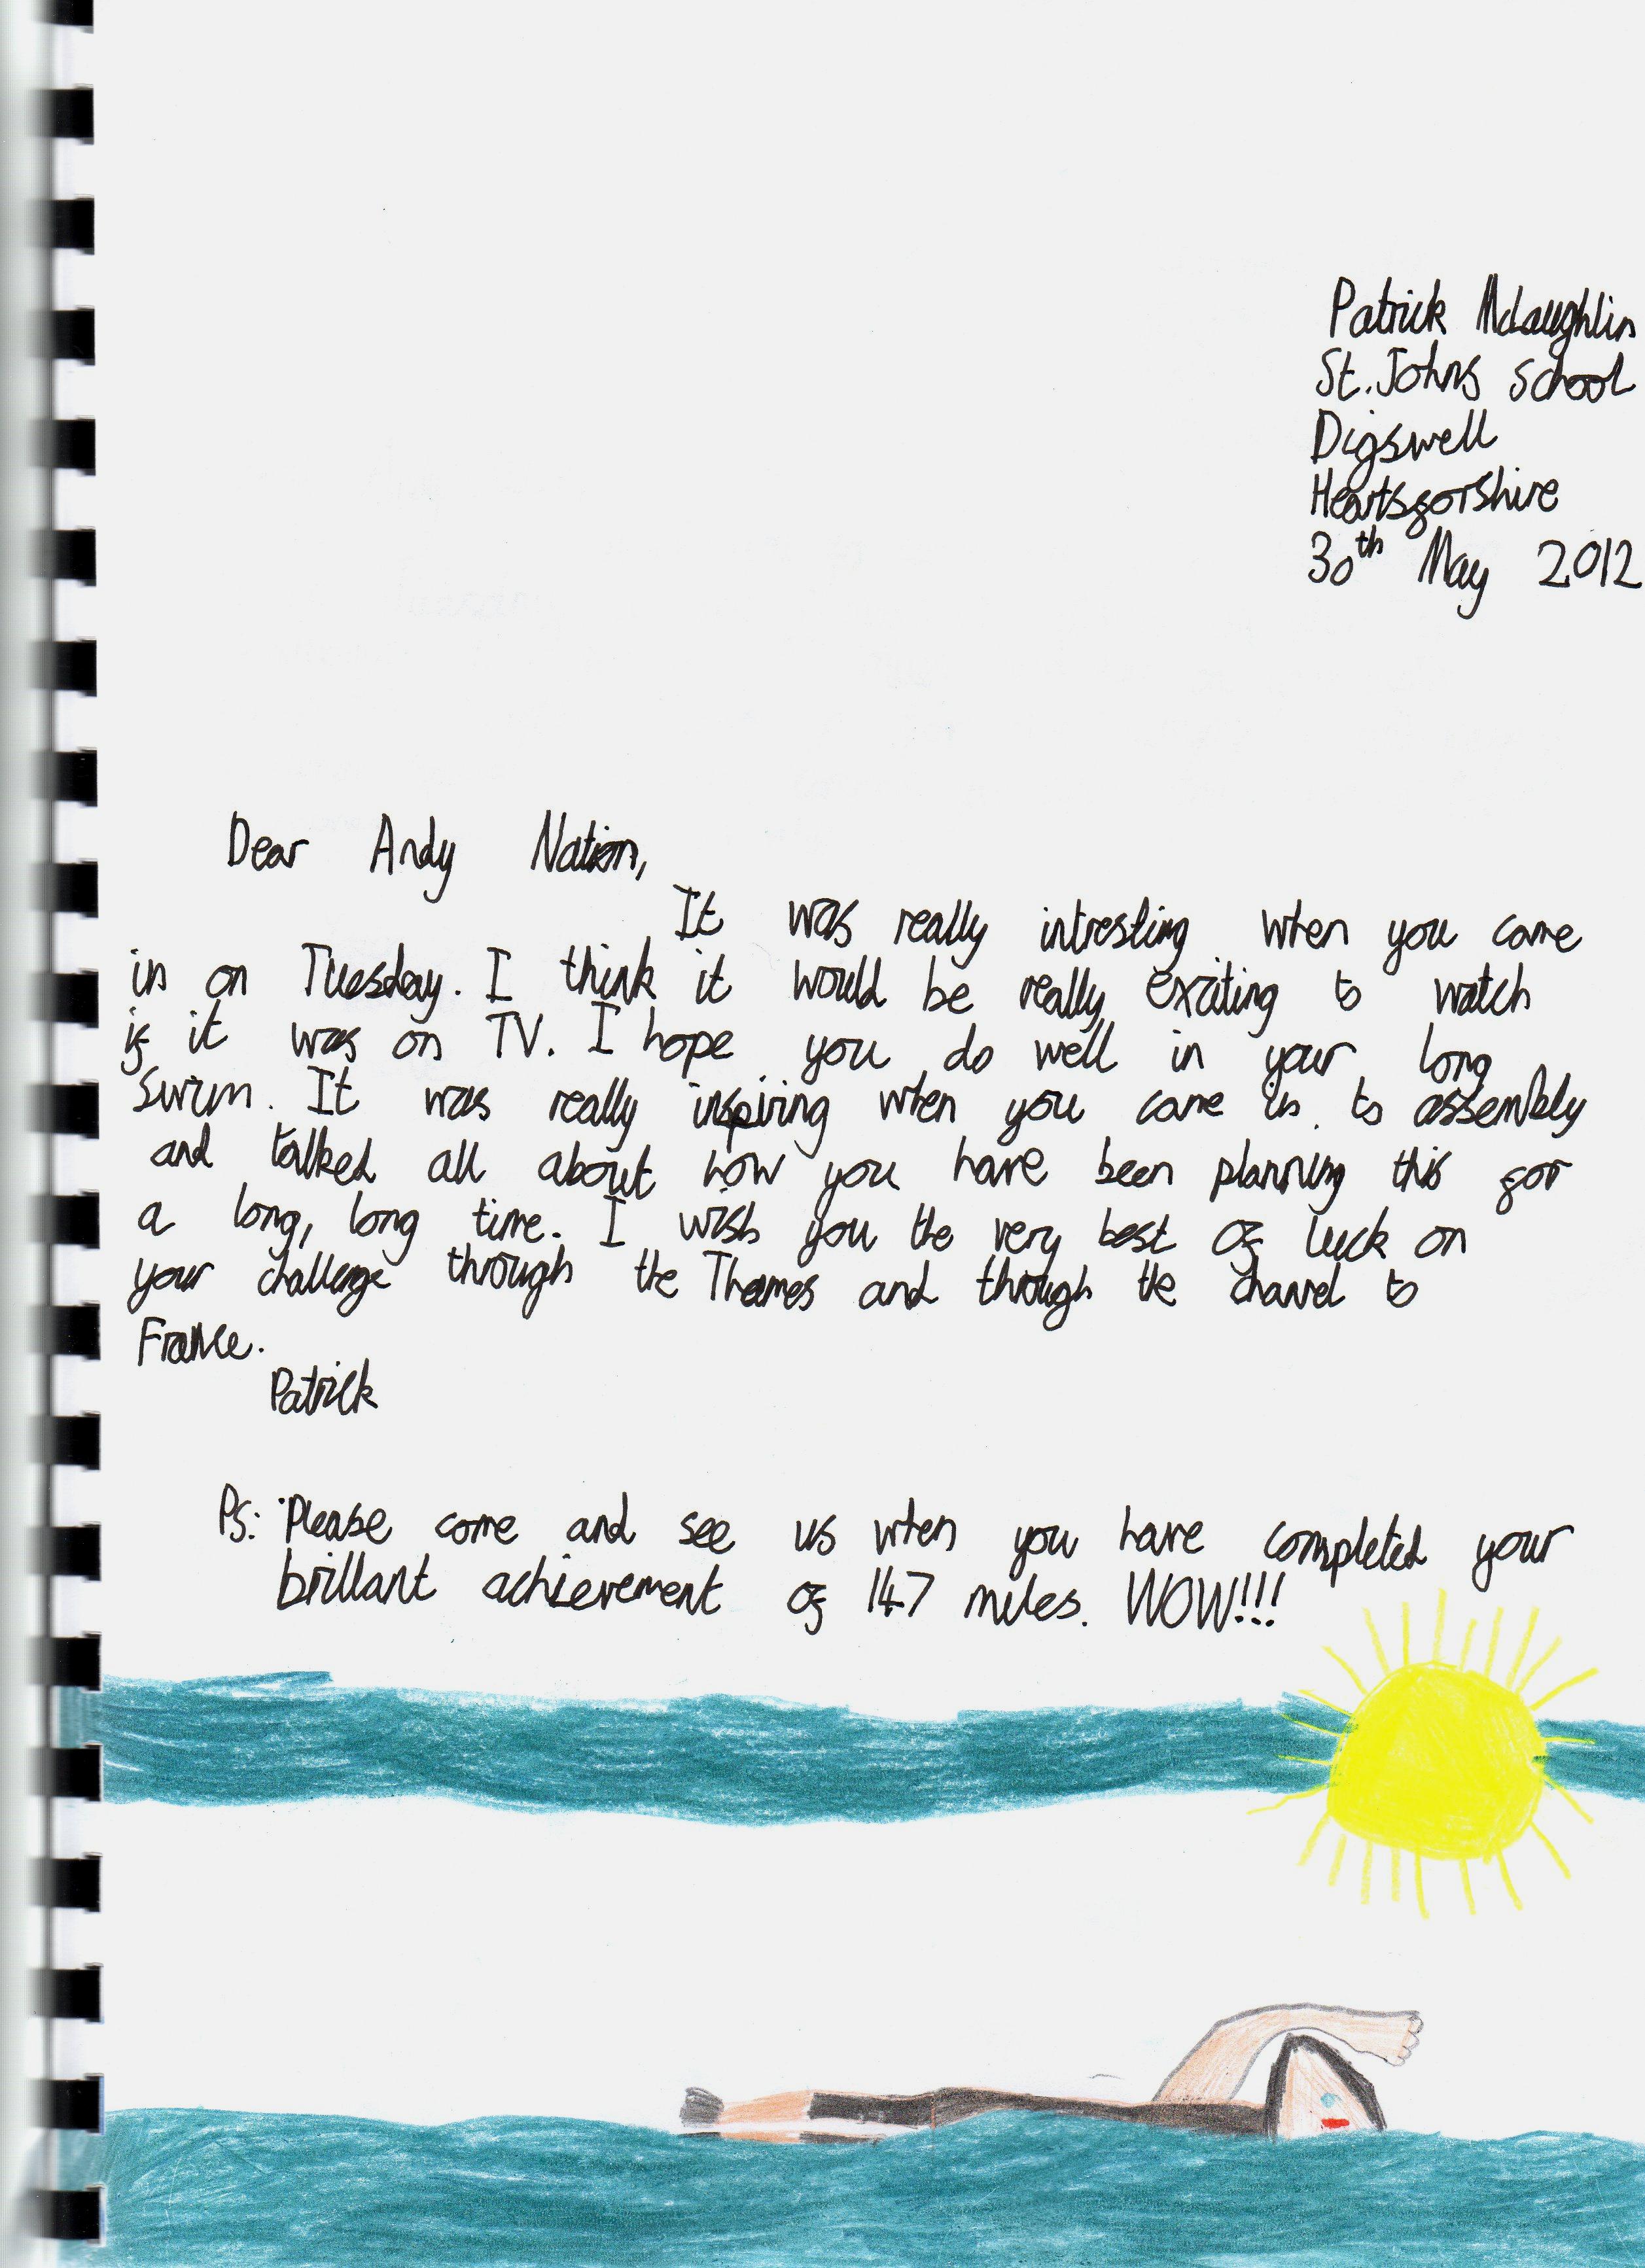 Patrick McLaughlin
St. Johns School
Digswell
Heartsforshire
30th May 2012
Dear Andy Nation,
It was really intresting when you came
in on Tuesday. I think it would be really exciting to watch
if it was on TV. I hope you do well in your long
Swim. It was really inspiring when you came in to assembly
and talked all about how you have been planning this for
a long, long time. I wish you the very best of luck on
your challenge through the Thames and through the channel to
France.
Patrick
Ps: Please come and see us when you have completed your
brillant achievement of 147 miles. WOW!!!